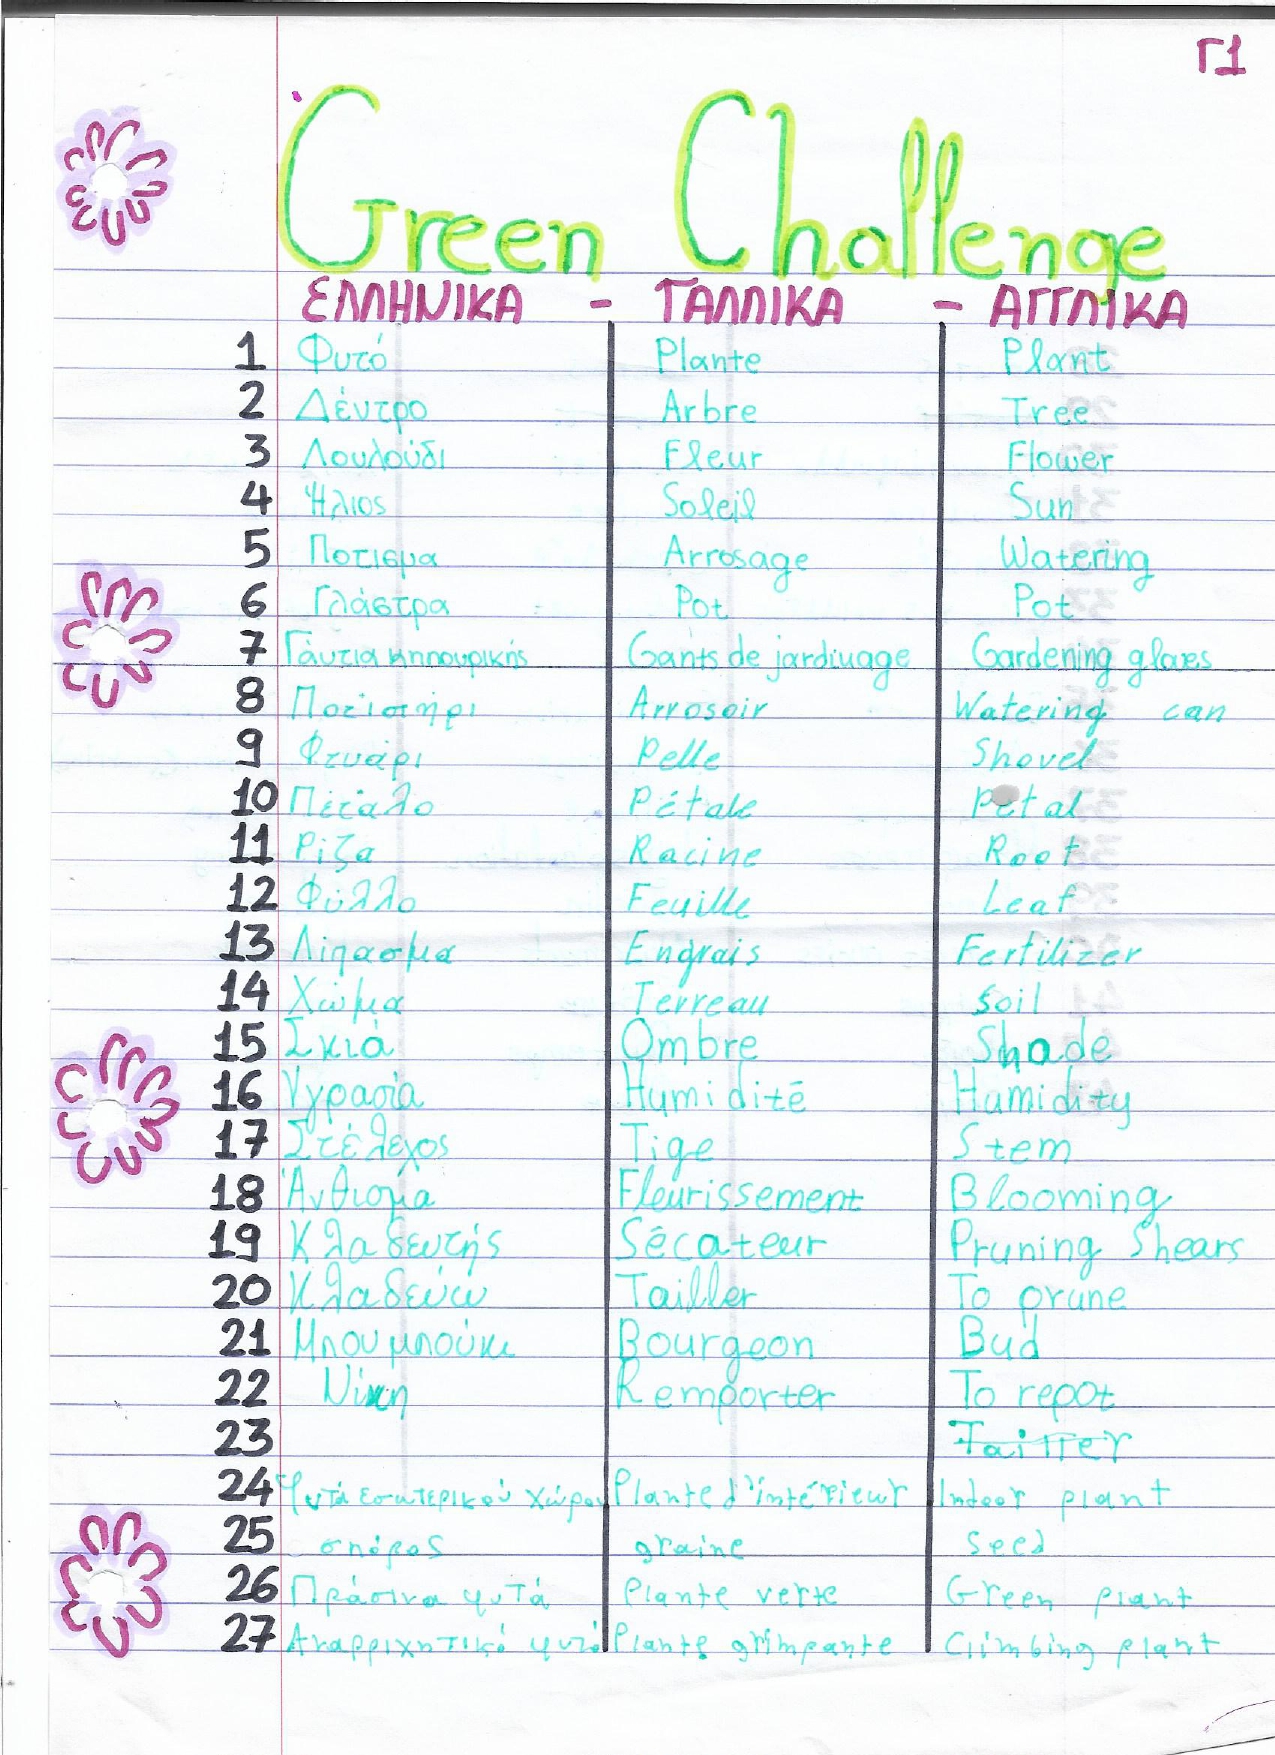 Γ1
Green Challenge
ΕΛΛΗΝΙΚΑ - ΓΑΛΛΙΚΑ - ΑΓΓΛΙΚΑ
1 Φυτό Plante Plant
2 Δέντρο Arbre Tree
3 Λουλούδι Fleur Flower
4 Ήλιος Soleil Sun
5 Ποτισμα Arrosage Watering
6 Γλάστρα Pot Pot
7 Γάντια κηπουρικής Gants de jardinage Gardening gloves
8 Ποτιστήρι Arrosoir Watering can
9 Φτυάρι Pelle Shovel
10 Πέταλο Pétale Petal
11 Ρίζα Racine Root
12 Φύλλο Feuille Leaf
13 Λίπασμα Engrais Fertilizer
14 Χώμα Terreau Soil
15 Σκιά Ombre Shade
16 Υγρασία Humidité Humidity
17 Στέλεχος Tige Stem
18 Άνθισμα Fleurissement Blooming
19 Κλαδευτής Sécateur Pruning Shears
20 Κλαδεύω Tailler To prune
21 Μπουμπούκι Bourgeon Bud
22 Νίκη Remporter To repot
23 Tailler
24 Φυτά εσωτερικού χώρου Plante d'intérieur Indoor plant
25 σπόρος graine Seed
26 Πράσινα φυτά Plante verte Green plant
27 Αναρριχητικό φυτό Plante grimpante Climbing plant